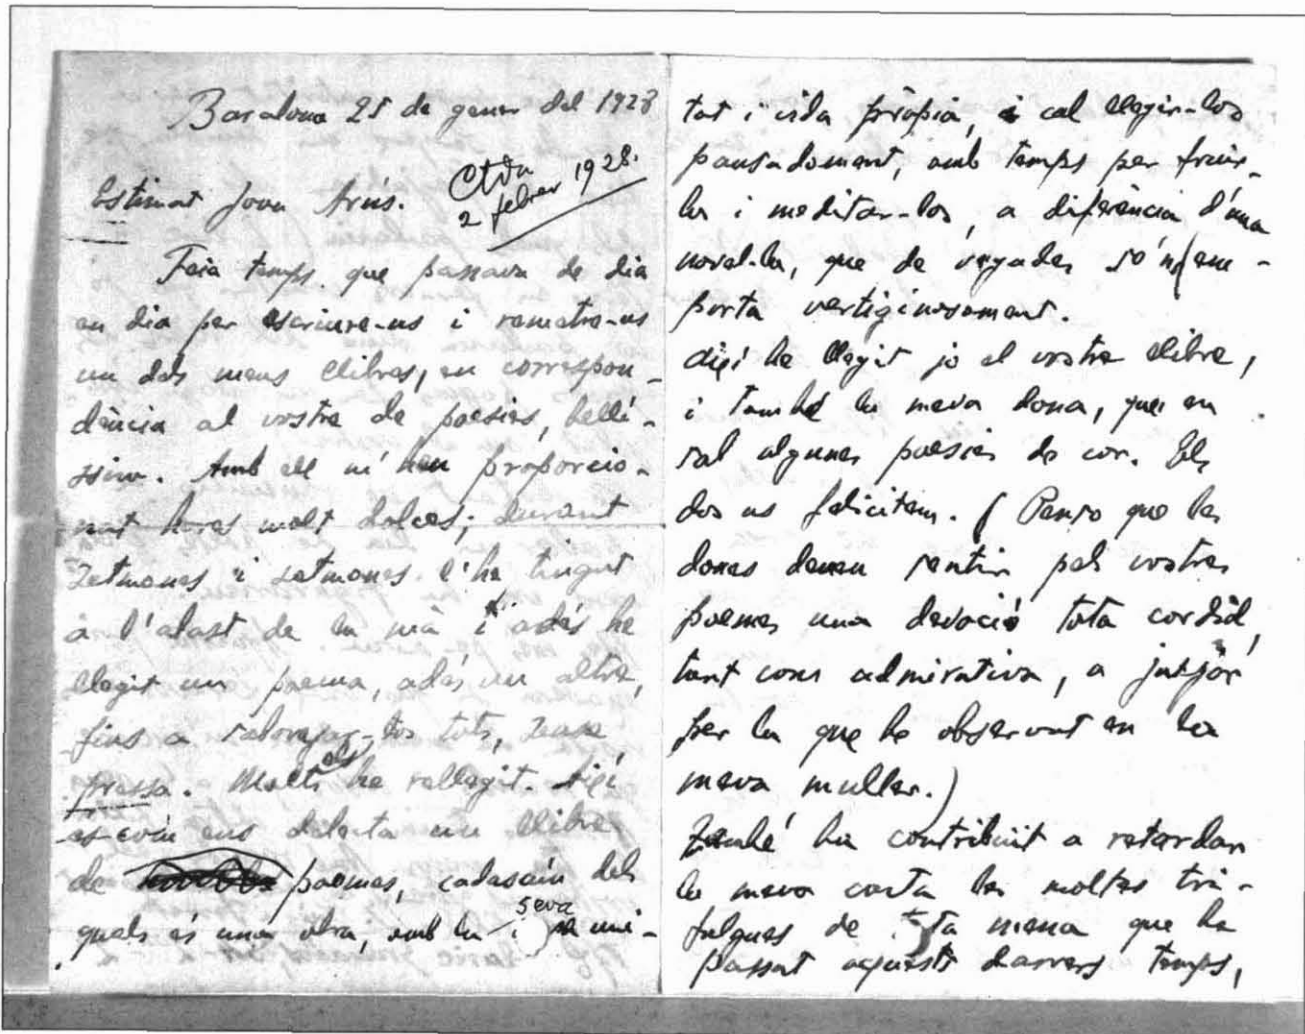 Barcelona 25 de gener del 1928
Ctda
2 febrer 1928.
Estimat Joan Arús.
Feia temps que passava de dia
en dia per escriure-us i remetre-us
un dels meus llibres, en correspon-
dència al vostre de poesies, bellí-
ssim. Amb ell m'heu proporcio-
nat hores molt dolces; durant
setmanes i setmanes l'he tingut
a l'abast de la mà i adés he
llegit un poema, adés un altre,
fins a saborejar-los tots, sense
pressa. Molts els he rellegit. Així
és com ens delecta un llibre
de poemes, cadascún dels
quals és una obra, amb la seva uni-
tat i vida pròpia, i cal llegir-los
pausadament, amb temps per fruir-
los i meditar-los, a diferència d'una
novel·la, que de vegades se'ns em-
porta vertiginosament.
Així he llegit jo el vostre llibre,
i també la meva dona, que en
sap algunes poesies de cor. Els
dos us felicitem. (Penso que les
dones deuen sentir pels vostres
poemes una devoció tota cordial,
tant com admirativa, a jutjar
per la que he observat en la
meva muller.)
També ha contribuït a retardar
la meva carta les moltes trà-
fulgues de tota mena que he
passat aquests darrers temps,